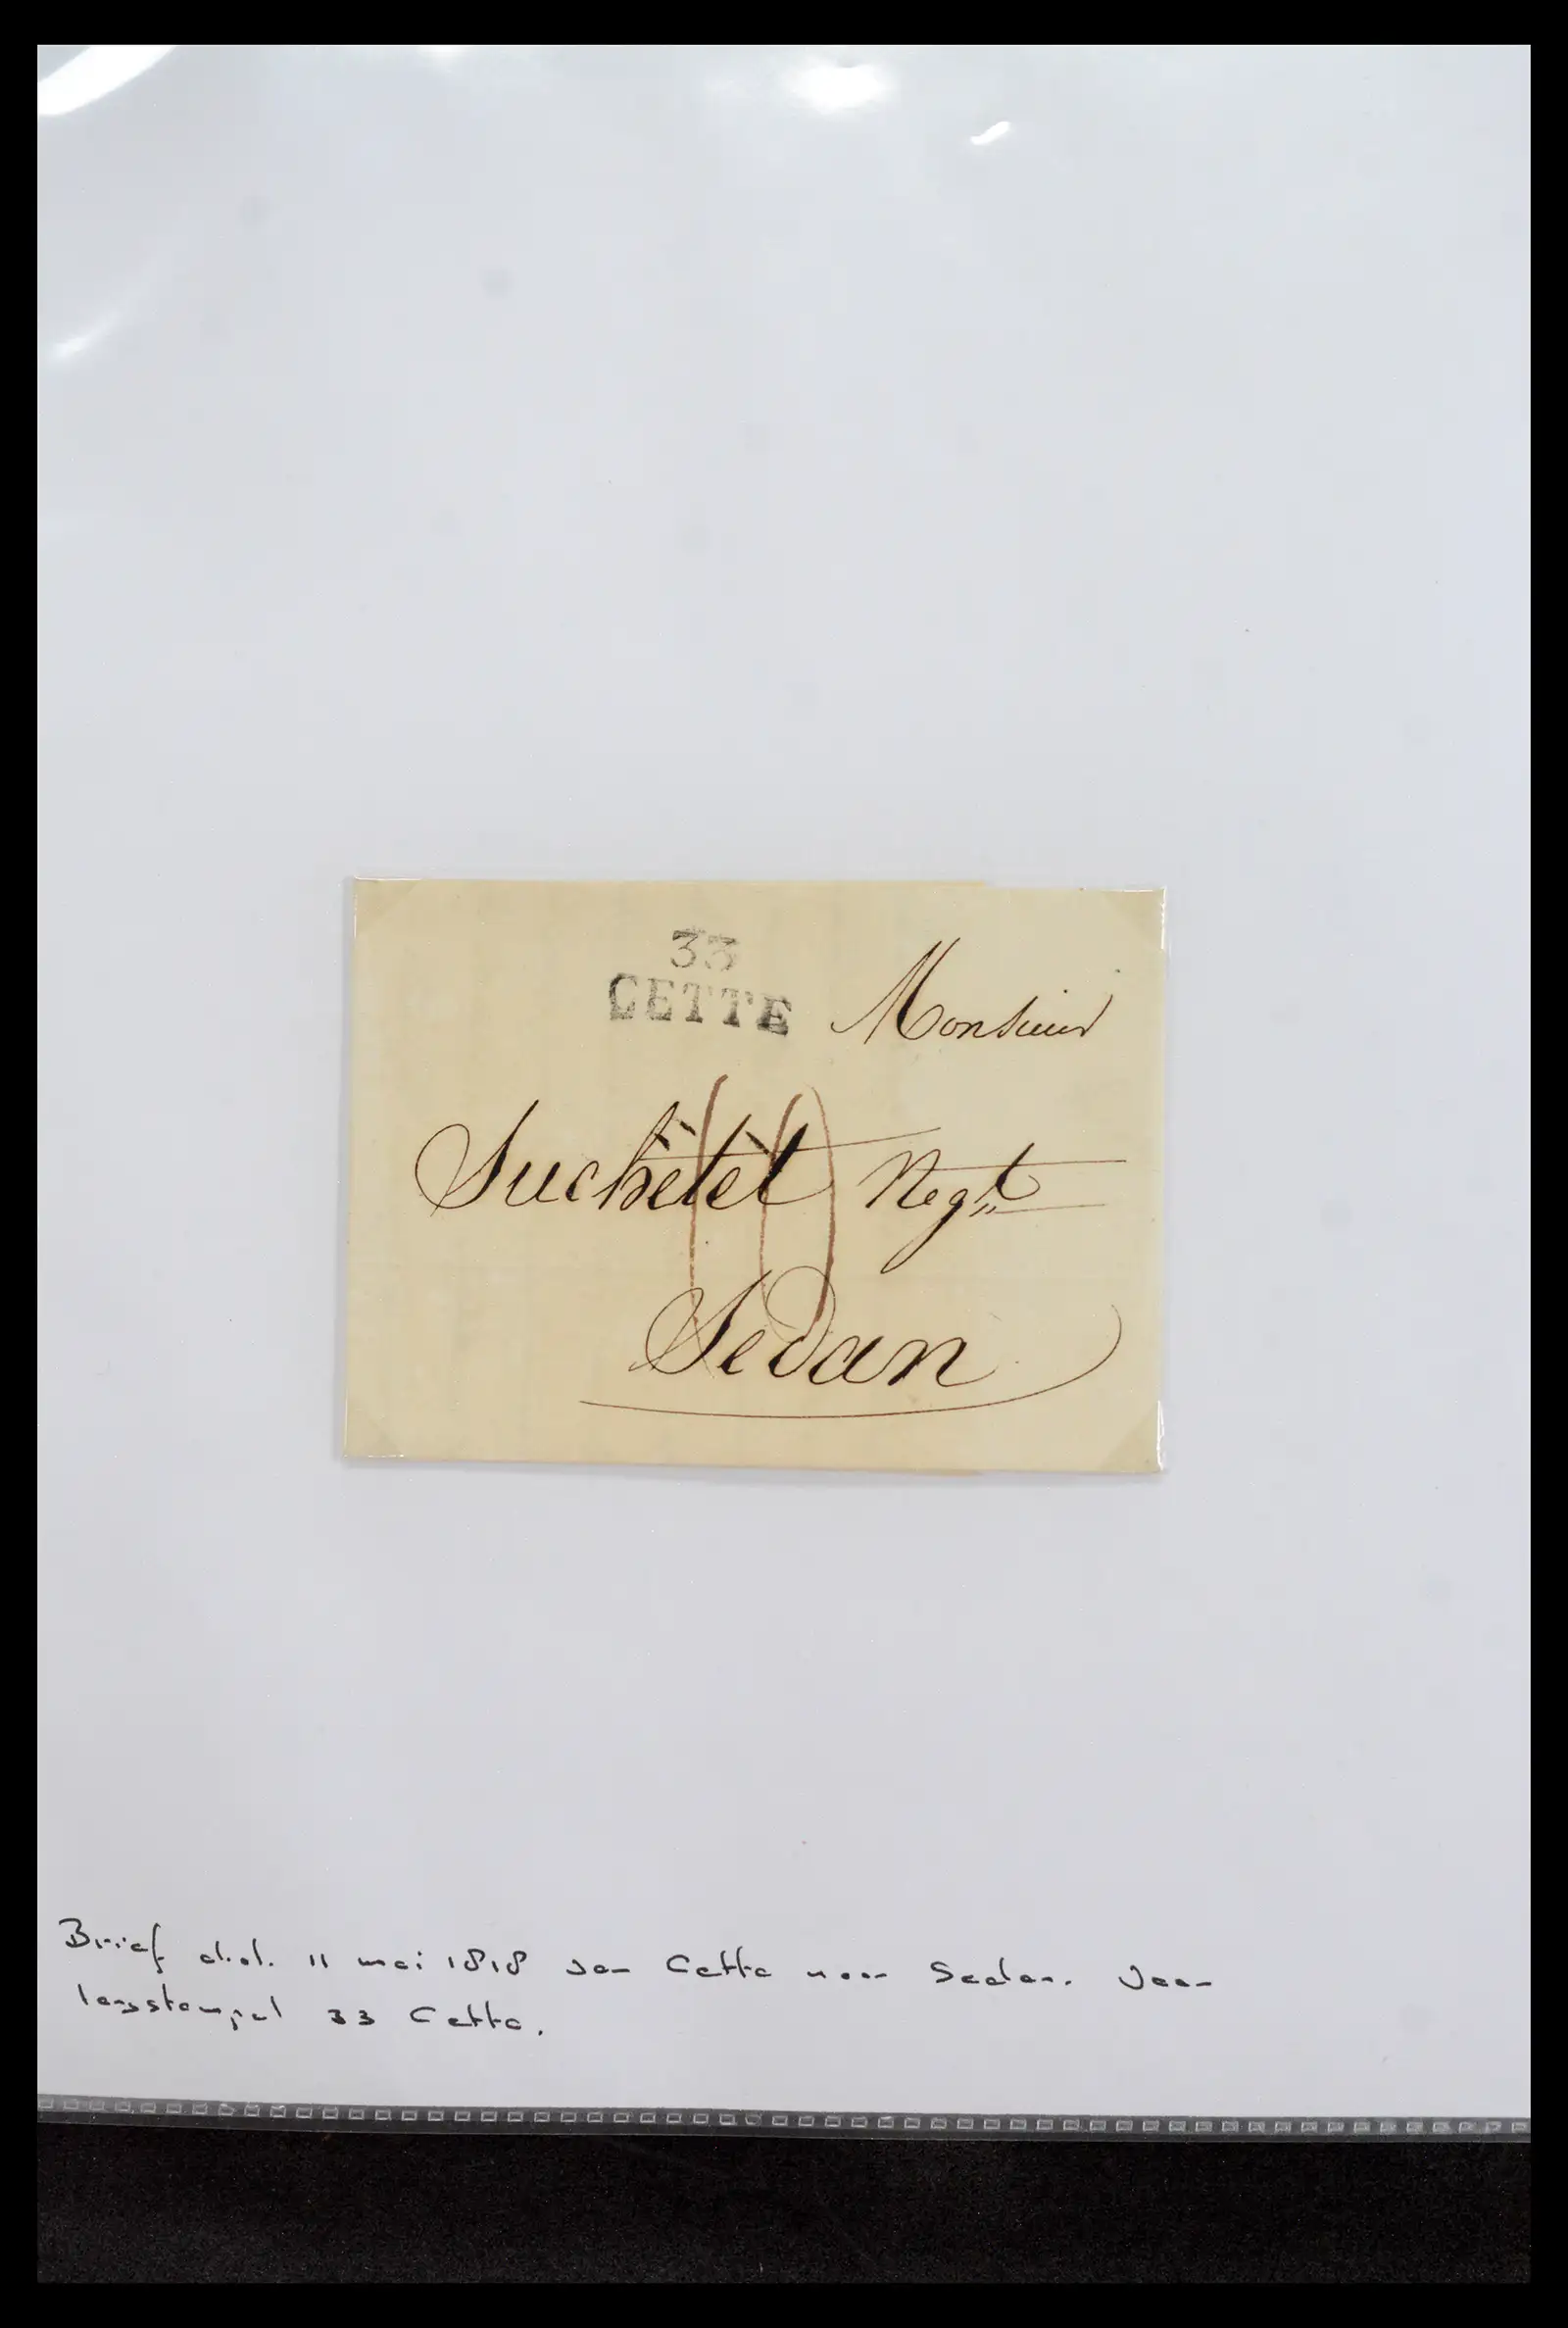 33
CETTE
Monsieur
Suchêtet Negt
10
Sedan
Brief d.d. 11 mei 1818 van Cette naar Sedan. Van
langstempel 33 Cette.